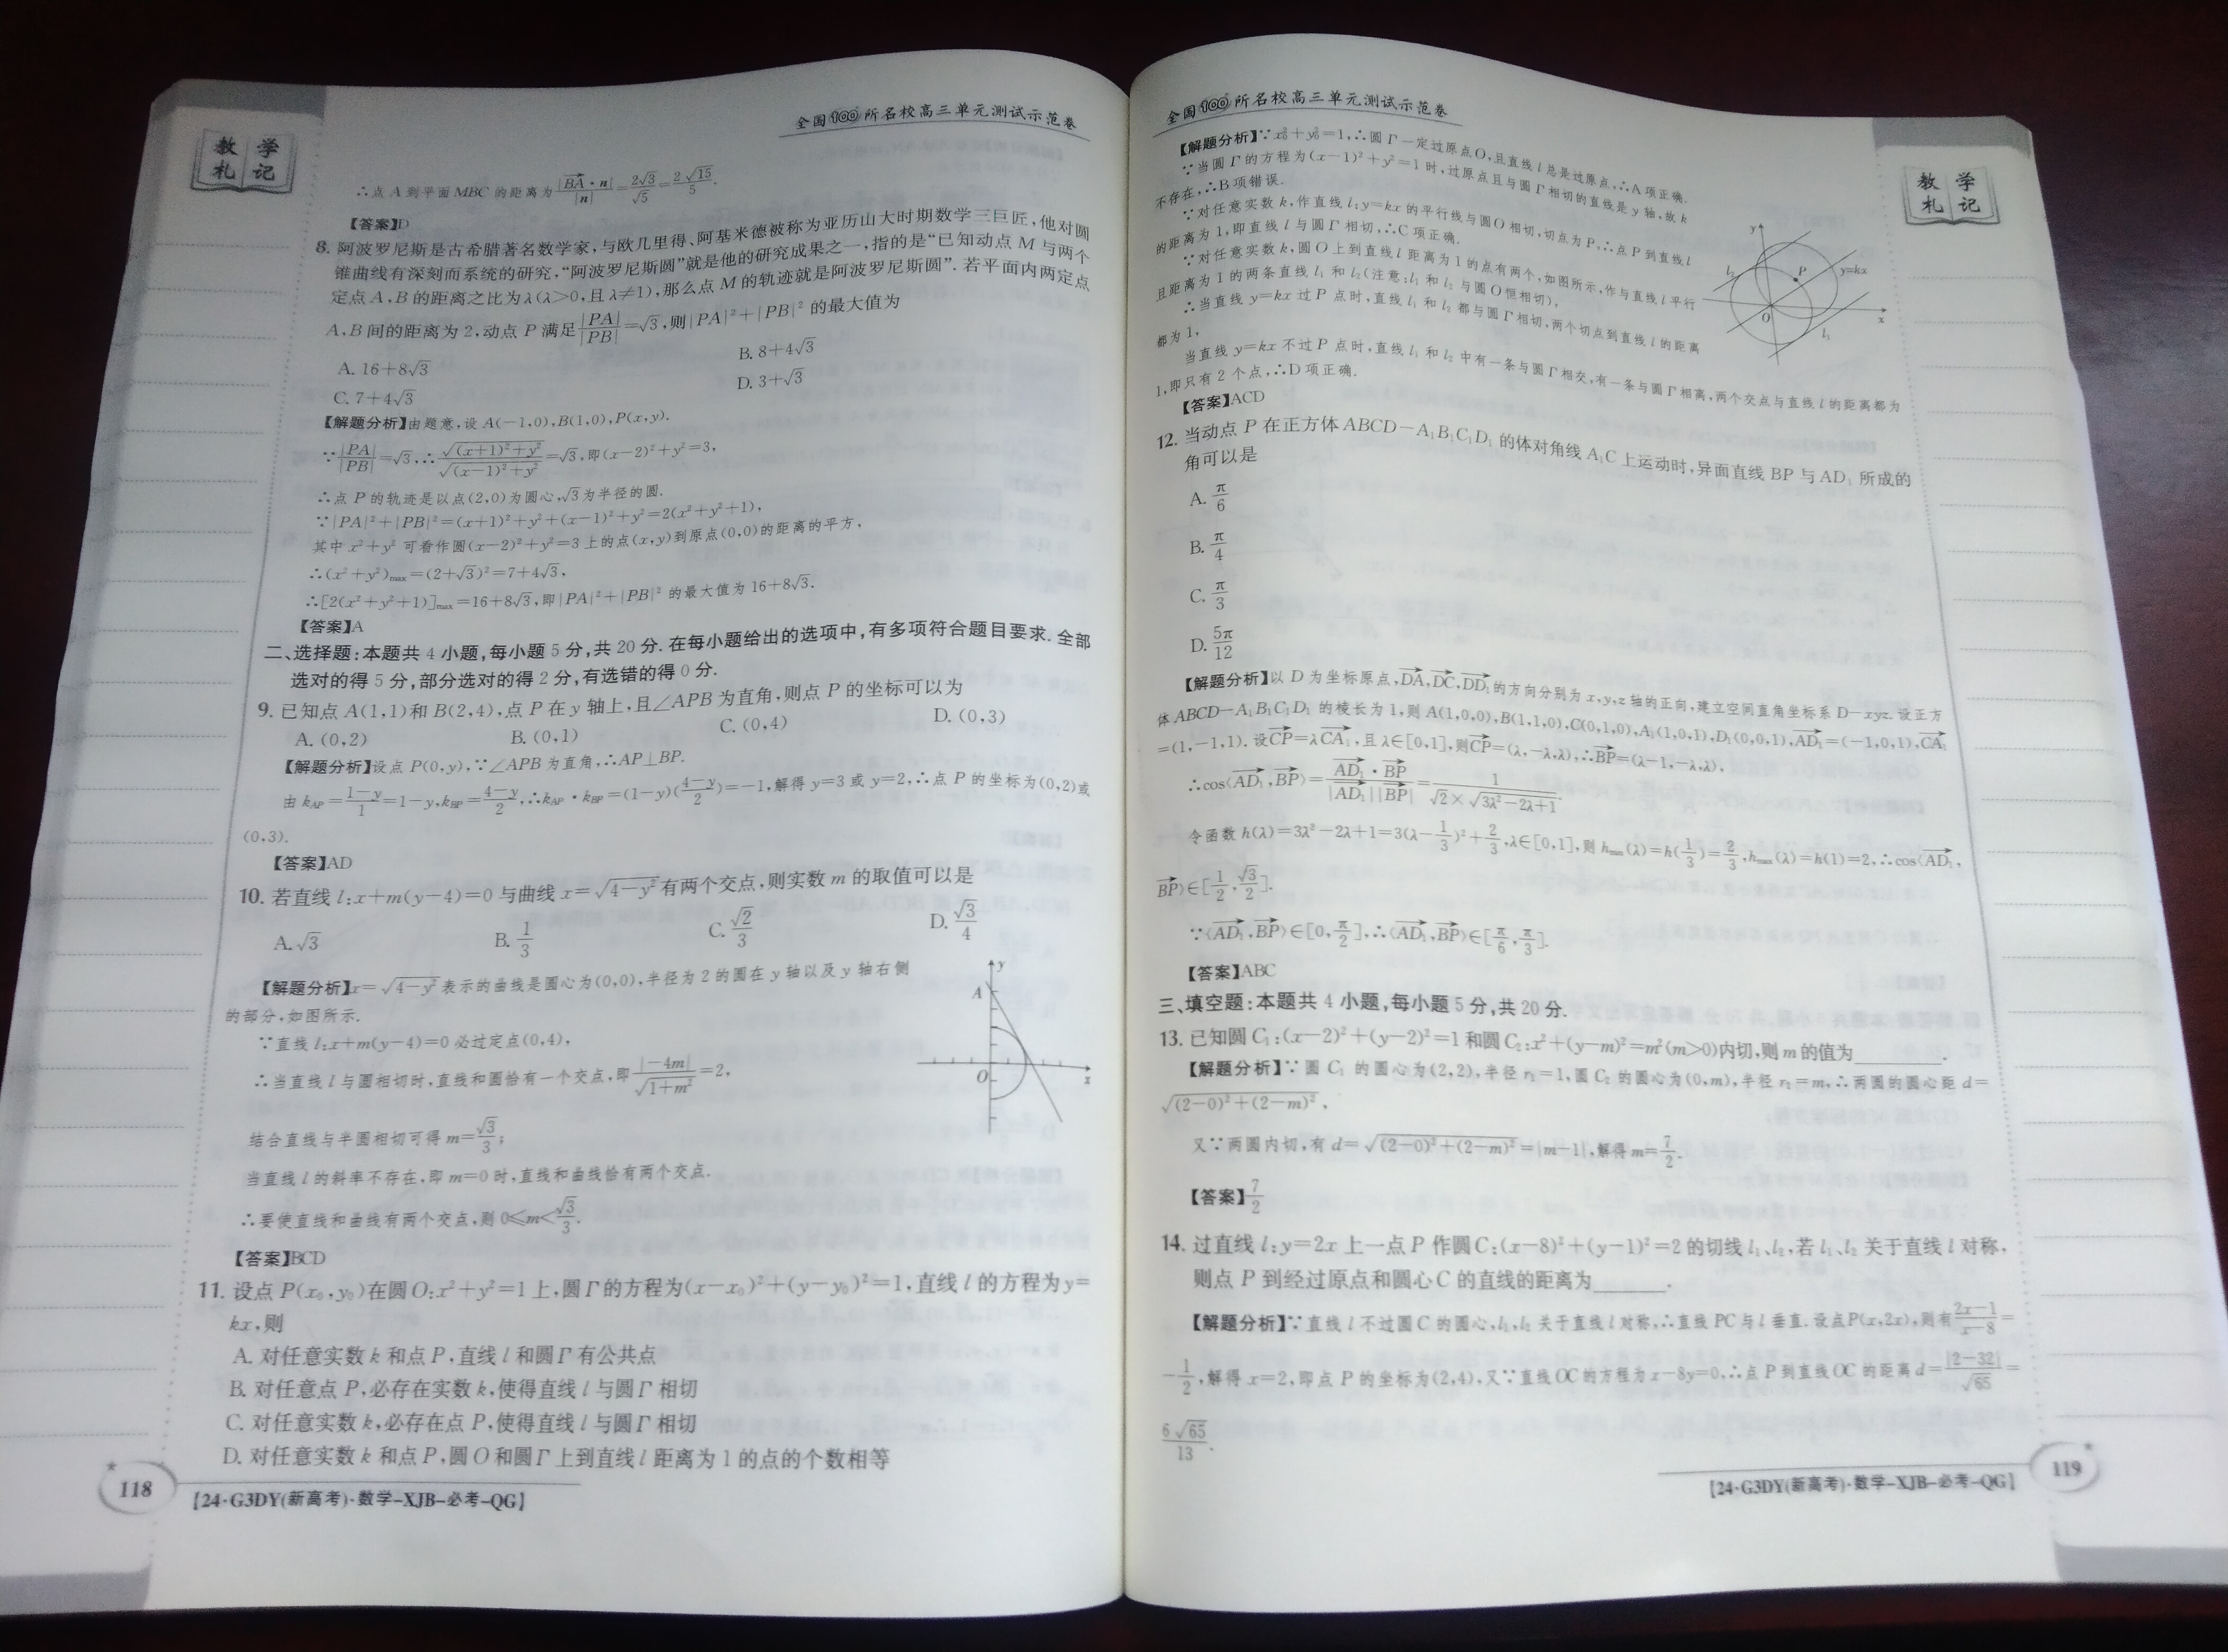 全国100所名校高三单元测试示范卷
教学札记
∴点 A 到平面 MBC 的距离为|BA·n|/|n|=2√3/√5=2√15/5.
【答案】D
8. 阿波罗尼斯是古希腊著名数学家,与欧几里得、阿基米德被称为亚历山大时期数学三巨匠,他对圆
锥曲线有深刻而系统的研究,“阿波罗尼斯圆”就是他的研究成果之一,指的是“已知动点 M 与两个
定点 A,B 的距离之比为 λ(λ>0,且 λ≠1),那么点 M 的轨迹就是阿波罗尼斯圆”. 若平面内两定点
A,B 间的距离为 2,动点 P 满足|PA|/|PB|=√3,则|PA|²+|PB|² 的最大值为
A. 16+8√3 B. 8+4√3
C. 7+4√3 D. 3+√3
【解题分析】由题意,设 A(-1,0),B(1,0),P(x,y).
∵|PA|/|PB|=√3,∴√((x+1)²+y²)/√((x-1)²+y²)=√3,即(x-2)²+y²=3,
∴点 P 的轨迹是以点(2,0)为圆心,√3为半径的圆.
∵|PA|²+|PB|²=(x+1)²+y²+(x-1)²+y²=2(x²+y²+1),
其中 x²+y² 可看作圆(x-2)²+y²=3上的点(x,y)到原点(0,0)的距离的平方,
∴(x²+y²)max=(2+√3)²=7+4√3,
∴[2(x²+y²+1)]max=16+8√3,即|PA|²+|PB|² 的最大值为 16+8√3.
【答案】A
二、选择题:本题共 4 小题,每小题 5 分,共 20 分. 在每小题给出的选项中,有多项符合题目要求. 全部
选对的得 5 分,部分选对的得 2 分,有选错的得 0 分.
9. 已知点 A(1,1)和 B(2,4),点 P 在 y 轴上,且∠APB 为直角,则点 P 的坐标可以为
A. (0,2) B. (0,1) C. (0,4) D. (0,3)
【解题分析】设点 P(0,y),∵∠APB 为直角,∴AP⊥BP.
由 kAP=(1-y)/1=1-y,kBP=(4-y)/2,∴kAP·kBP=(1-y)((4-y)/2)=-1,解得 y=3 或 y=2,∴点 P 的坐标为(0,2)或
(0,3).
【答案】AD
10. 若直线 l:x+m(y-4)=0 与曲线 x=√(4-y²) 有两个交点,则实数 m 的取值可以是
A. √3 B. 1/3 C. √2/3 D. √3/4
【解题分析】x=√(4-y²) 表示的曲线是圆心为(0,0),半径为 2 的圆在 y 轴以及 y 轴右侧
的部分,如图所示.
∵直线 l:x+m(y-4)=0 必过定点(0,4),
∴当直线 l 与圆相切时,直线和圆恰有一个交点,即|-4m|/√(1+m²)=2,
结合直线与半圆相切可得 m=√3/3;
当直线 l 的斜率不存在,即 m=0 时,直线和曲线恰有两个交点.
∴要使直线和曲线有两个交点,则 0≤m<√3/3.
y
A
O
x
【答案】BCD
11. 设点 P(x₀,y₀)在圆 O:x²+y²=1 上,圆 Γ 的方程为(x-x₀)²+(y-y₀)²=1,直线 l 的方程为 y=
kx,则
A. 对任意实数 k 和点 P,直线 l 和圆 Γ 有公共点
B. 对任意点 P,必存在实数 k,使得直线 l 与圆 Γ 相切
C. 对任意实数 k,必存在点 P,使得直线 l 与圆 Γ 相切
D. 对任意实数 k 和点 P,圆 O 和圆 Γ 上到直线 l 距离为 1 的点的个数相等
118
【24·G3DY(新高考)·数学-XJB-必考-QG】
全国100所名校高三单元测试示范卷
教学札记
【解题分析】∵x₀²+y₀²=1,∴圆 Γ 一定过原点 O,且直线 l 总是过原点,∴A 项正确.
∵当圆 Γ 的方程为(x-1)²+y²=1 时,过原点且与圆 Γ 相切的直线是 y 轴,故 k
不存在,∴B 项错误.
∵对任意实数 k,作直线 l:y=kx 的平行线与圆 O 相切,切点为 P,∴点 P 到直线 l
的距离为 1,即直线 l 与圆 Γ 相切,∴C 项正确.
∵对任意实数 k,圆 O 上到直线 l 距离为 1 的点有两个,如图所示,作与直线 l 平行
且距离为 1 的两条直线 l₁ 和 l₂(注意:l₁ 和 l₂ 与圆 O 恒相切),
∴当直线 y=kx 过 P 点时,直线 l₁ 和 l₂ 都与圆 Γ 相切,两个切点到直线 l 的距离
都为 1,
当直线 y=kx 不过 P 点时,直线 l₁ 和 l₂ 中有一条与圆 Γ 相交,有一条与圆 Γ 相离,两个交点与直线 l 的距离都为
1,即只有 2 个点,∴D 项正确.
y
l₂
P
y=kx
O
x
l₁
【答案】ACD
12. 当动点 P 在正方体 ABCD-A₁B₁C₁D₁ 的体对角线 A₁C 上运动时,异面直线 BP 与 AD₁ 所成的
角可以是
A. π/6
B. π/4
C. π/3
D. 5π/12
【解题分析】以 D 为坐标原点,DA,DC,DD₁的方向分别为 x,y,z 轴的正向,建立空间直角坐标系 D-xyz. 设正方
体 ABCD-A₁B₁C₁D₁ 的棱长为 1,则 A(1,0,0),B(1,1,0),C(0,1,0),A₁(1,0,1),D₁(0,0,1),AD₁=(-1,0,1),CA₁
=(1,-1,1). 设CP=λCA₁,且 λ∈[0,1],则CP=(λ,-λ,λ),∴BP=(λ-1,-λ,λ),
∴cos⟨AD₁,BP⟩=AD₁·BP/|AD₁||BP|=1/(√2×√(3λ²-2λ+1)).
令函数 h(λ)=3λ²-2λ+1=3(λ-1/3)²+2/3,λ∈[0,1],则 hmin(λ)=h(1/3)=2/3,hmax(λ)=h(1)=2,∴cos⟨AD₁,
BP⟩∈[1/2,√3/2].
∵⟨AD₁,BP⟩∈[0,π/2],∴⟨AD₁,BP⟩∈[π/6,π/3].
【答案】ABC
三、填空题:本题共 4 小题,每小题 5 分,共 20 分.
13. 已知圆 C₁:(x-2)²+(y-2)²=1 和圆 C₂:x²+(y-m)²=m²(m>0)内切,则 m 的值为________.
【解题分析】∵圆 C₁ 的圆心为(2,2),半径 r₁=1,圆 C₂ 的圆心为(0,m),半径 r₂=m,∴两圆的圆心距 d=
√((2-0)²+(2-m)²),
又∵两圆内切,有 d=√((2-0)²+(2-m)²)=|m-1|,解得 m=7/2.
【答案】7/2
14. 过直线 l:y=2x 上一点 P 作圆 C:(x-8)²+(y-1)²=2 的切线 l₁、l₂,若 l₁、l₂ 关于直线 l 对称,
则点 P 到经过原点和圆心 C 的直线的距离为________.
【解题分析】∵直线 l 不过圆 C 的圆心,l₁,l₂ 关于直线 l 对称,∴直线 PC 与 l 垂直. 设点 P(x,2x),则有(2x-1)/(x-8)=
-1/2,解得 x=2,即点 P 的坐标为(2,4),又∵直线 OC 的方程为 x-8y=0,∴点 P 到直线 OC 的距离 d=|2-32|/√65=
6√65/13.
119
【24·G3DY(新高考)·数学-XJB-必考-QG】